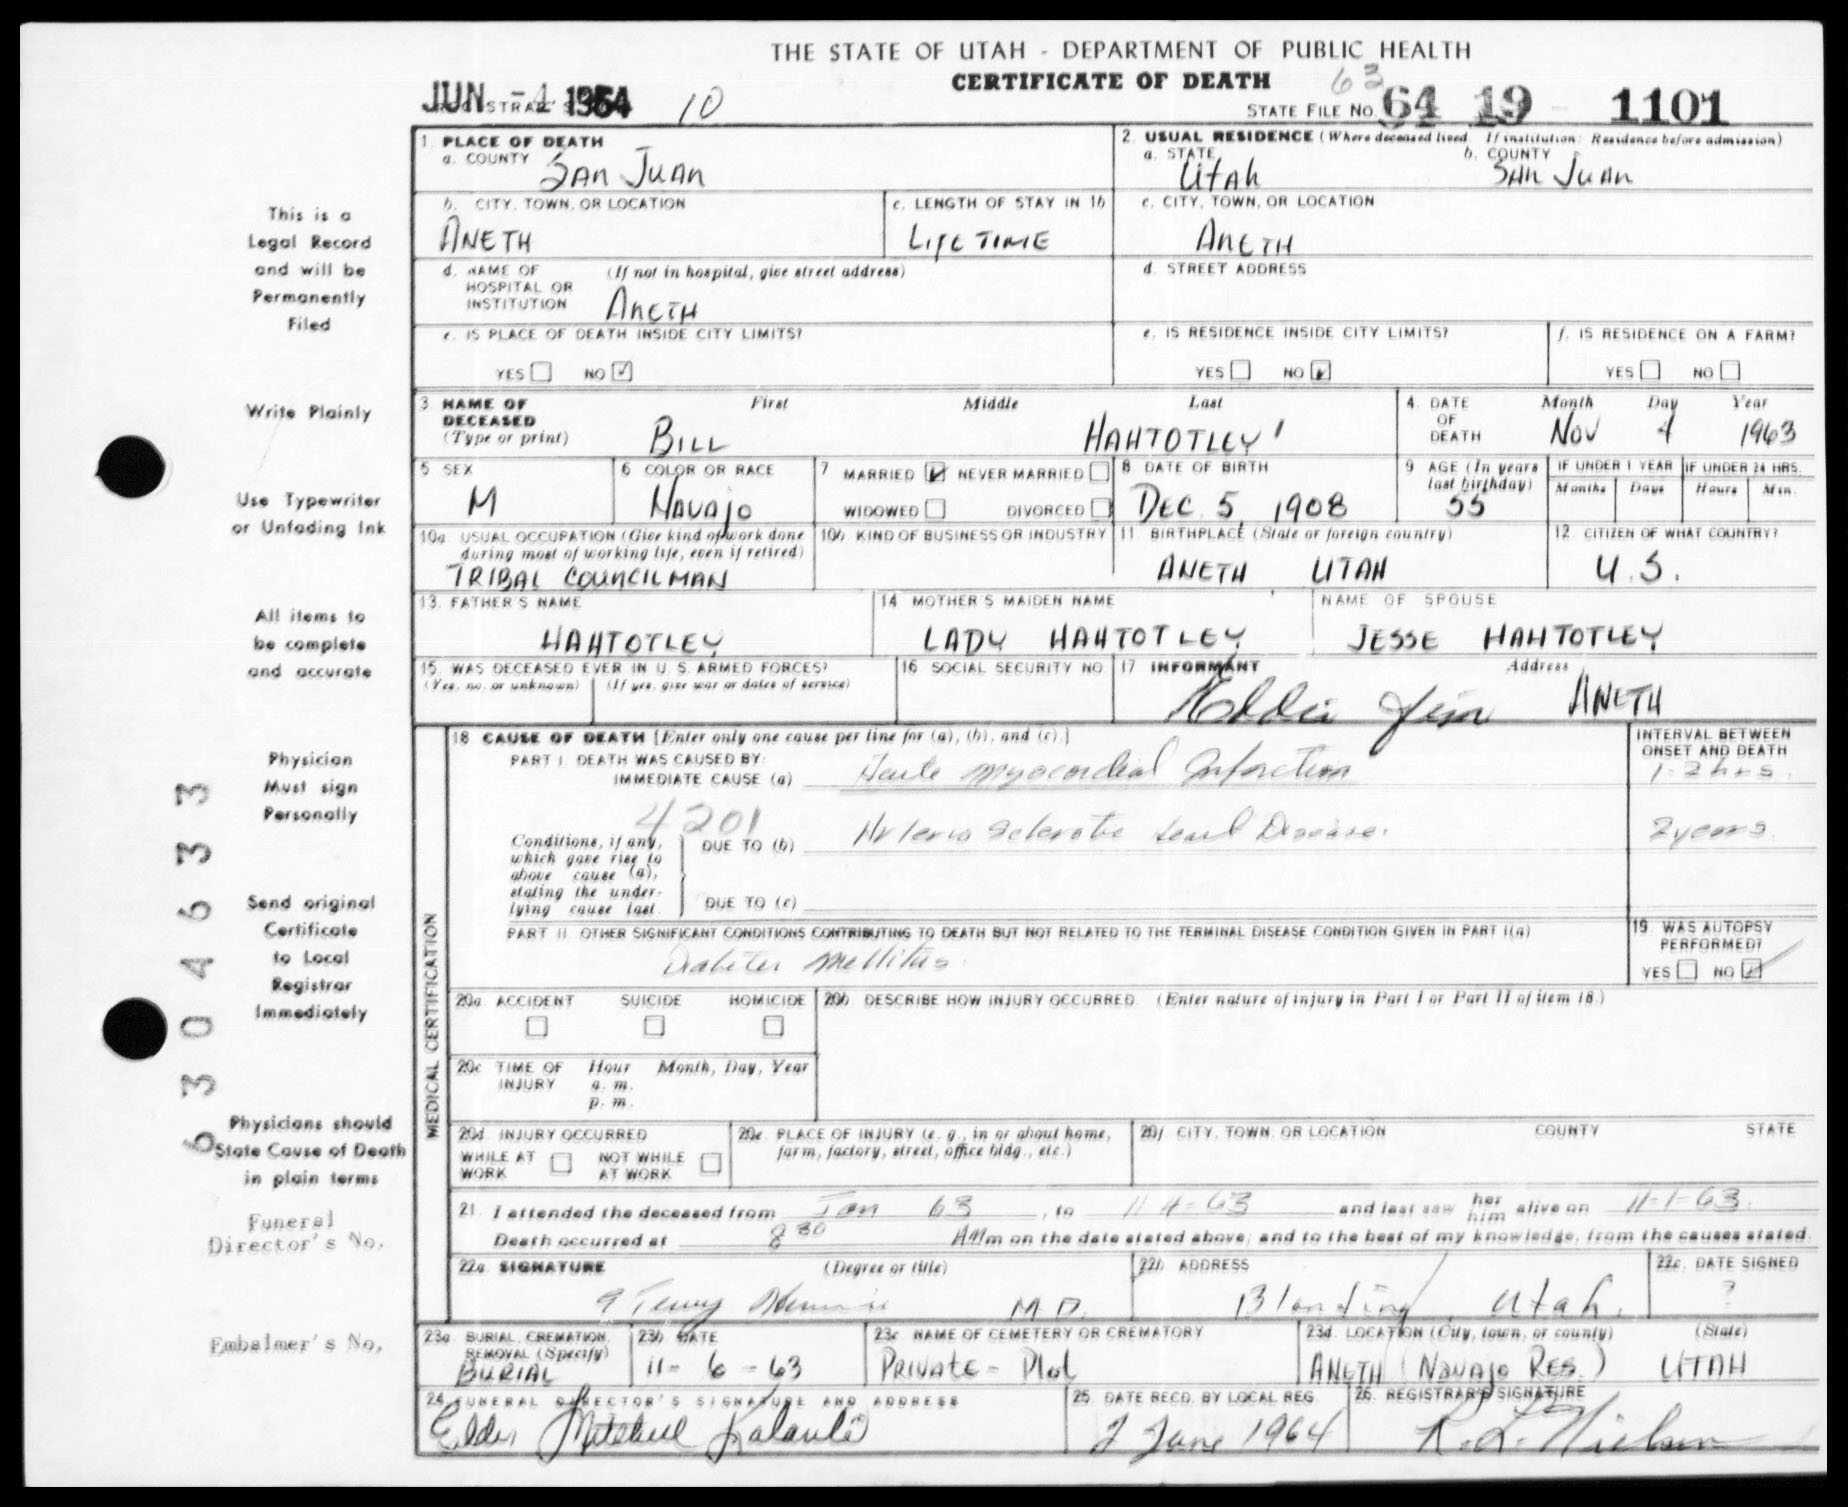 THE STATE OF UTAH - DEPARTMENT OF PUBLIC HEALTH
CERTIFICATE OF DEATH
63
JUN -4 1964
REGISTRAR'S
10
STATE FILE NO. 64 19 1101
1. PLACE OF DEATH
a. COUNTY San Juan
2. USUAL RESIDENCE (Where deceased lived. If institution: Residence before admission)
a. STATE Utah
b. COUNTY San Juan
b. CITY, TOWN, OR LOCATION ANETH
c. LENGTH OF STAY IN 1b LIFETIME
c. CITY, TOWN, OR LOCATION ANETH
d. NAME OF HOSPITAL OR INSTITUTION (If not in hospital, give street address) ANETH
d. STREET ADDRESS
e. IS PLACE OF DEATH INSIDE CITY LIMITS?
YES NO
e. IS RESIDENCE INSIDE CITY LIMITS?
YES NO
f. IS RESIDENCE ON A FARM?
YES NO
3 NAME OF DECEASED (Type or print)
First Middle Last
BILL HAHTOTLEY
4. DATE OF DEATH
Month Day Year
Nov 4 1963
5 SEX M
6 COLOR OR RACE Navajo
7 MARRIED NEVER MARRIED
WIDOWED DIVORCED
8 DATE OF BIRTH DEC. 5, 1908
9 AGE (In years last birthday) 55
IF UNDER 1 YEAR
Months Days
IF UNDER 24 HRS.
Hours Min.
10a. USUAL OCCUPATION (Give kind of work done during most of working life, even if retired)
TRIBAL COUNCILMAN
10b. KIND OF BUSINESS OR INDUSTRY
11 BIRTHPLACE (State or foreign country)
ANETH UTAH
12. CITIZEN OF WHAT COUNTRY?
U.S.
13. FATHER'S NAME
HAHTOTLEY
14 MOTHER'S MAIDEN NAME
LADY HAHTOTLEY
NAME OF SPOUSE
JESSE HAHTOTLEY
15. WAS DECEASED EVER IN U.S. ARMED FORCES?
(Yes, no, or unknown) (If yes, give war or dates of service)
16 SOCIAL SECURITY NO.
17 INFORMANT Address
Eddie Jim ANETH
MEDICAL CERTIFICATION
18 CAUSE OF DEATH [Enter only one cause per line for (a), (b), and (c).]
INTERVAL BETWEEN ONSET AND DEATH
PART I. DEATH WAS CAUSED BY:
IMMEDIATE CAUSE (a) Acute myocardial Infarction
1-2 hrs.
4201
Conditions, if any, which gave rise to above cause (a), stating the underlying cause last.
DUE TO (b) Arterio Sclerotic heart Disease.
2 years.
DUE TO (c)
PART II. OTHER SIGNIFICANT CONDITIONS CONTRIBUTING TO DEATH BUT NOT RELATED TO THE TERMINAL DISEASE CONDITION GIVEN IN PART I(a)
Diabetes Mellitus.
19. WAS AUTOPSY PERFORMED?
YES NO
20a. ACCIDENT SUICIDE HOMICIDE
20b. DESCRIBE HOW INJURY OCCURRED. (Enter nature of injury in Part I or Part II of item 18.)
20c. TIME OF INJURY Hour Month, Day, Year
a. m.
p. m.
20d. INJURY OCCURRED
WHILE AT WORK NOT WHILE AT WORK
20e. PLACE OF INJURY (e. g., in or about home, farm, factory, street, office bldg., etc.)
20f. CITY, TOWN, OR LOCATION COUNTY STATE
21. I attended the deceased from Jan 63, to 11-4-63 and last saw her him alive on 11-1-63.
Death occurred at 8 30 A m on the date stated above; and to the best of my knowledge, from the causes stated.
22a. SIGNATURE (Degree or title)
M.D.
22b. ADDRESS
Blanding, Utah.
22c. DATE SIGNED
?
23a. BURIAL, CREMATION, REMOVAL (Specify)
BURIAL
23b. DATE
11-6-63
23c. NAME OF CEMETERY OR CREMATORY
PRIVATE - Plot
23d. LOCATION (City, town, or county) (State)
ANETH (Navajo Res.) UTAH
24. FUNERAL DIRECTOR'S SIGNATURE AND ADDRESS
Elder Mitchell
25. DATE RECD. BY LOCAL REG.
2 June 1964
26. REGISTRAR'S SIGNATURE
R. L. Nielson
This is a
Legal Record
and will be
Permanently
Filed
Write Plainly
Use Typewriter
or Unfading Ink
All items to
be complete
and accurate
Physician
Must sign
Personally
Send original
Certificate
to Local
Registrar
Immediately
Physicians should
State Cause of Death
in plain terms
Funeral
Director's No.
Embalmer's No.
63046333